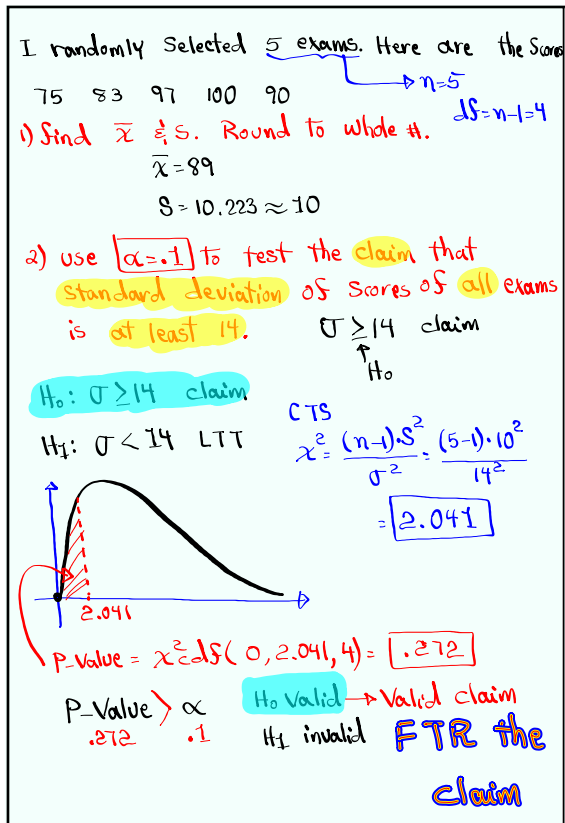 I randomly Selected 5 exams. Here are the Scores
75 83 97 100 90
n=5
df=n-1=4
1) find x̄ & S. Round to whole #.
x̄=89
S=10.223≈10
2) use α=.1 to test the claim that
standard deviation of scores of all exams
is at least 14.
σ≥14 claim
↑
H₀
H₀: σ≥14 claim
H₁: σ<14 LTT
CTS
χ²=(n-1)·S²/σ²=(5-1)·10²/14²
=2.041
2.041
P-Value = χ²cdf(0, 2.041, 4)= .272
P-Value > α
.272 .1
H₀ Valid→Valid claim
H₁ invalid
FTR the
claim